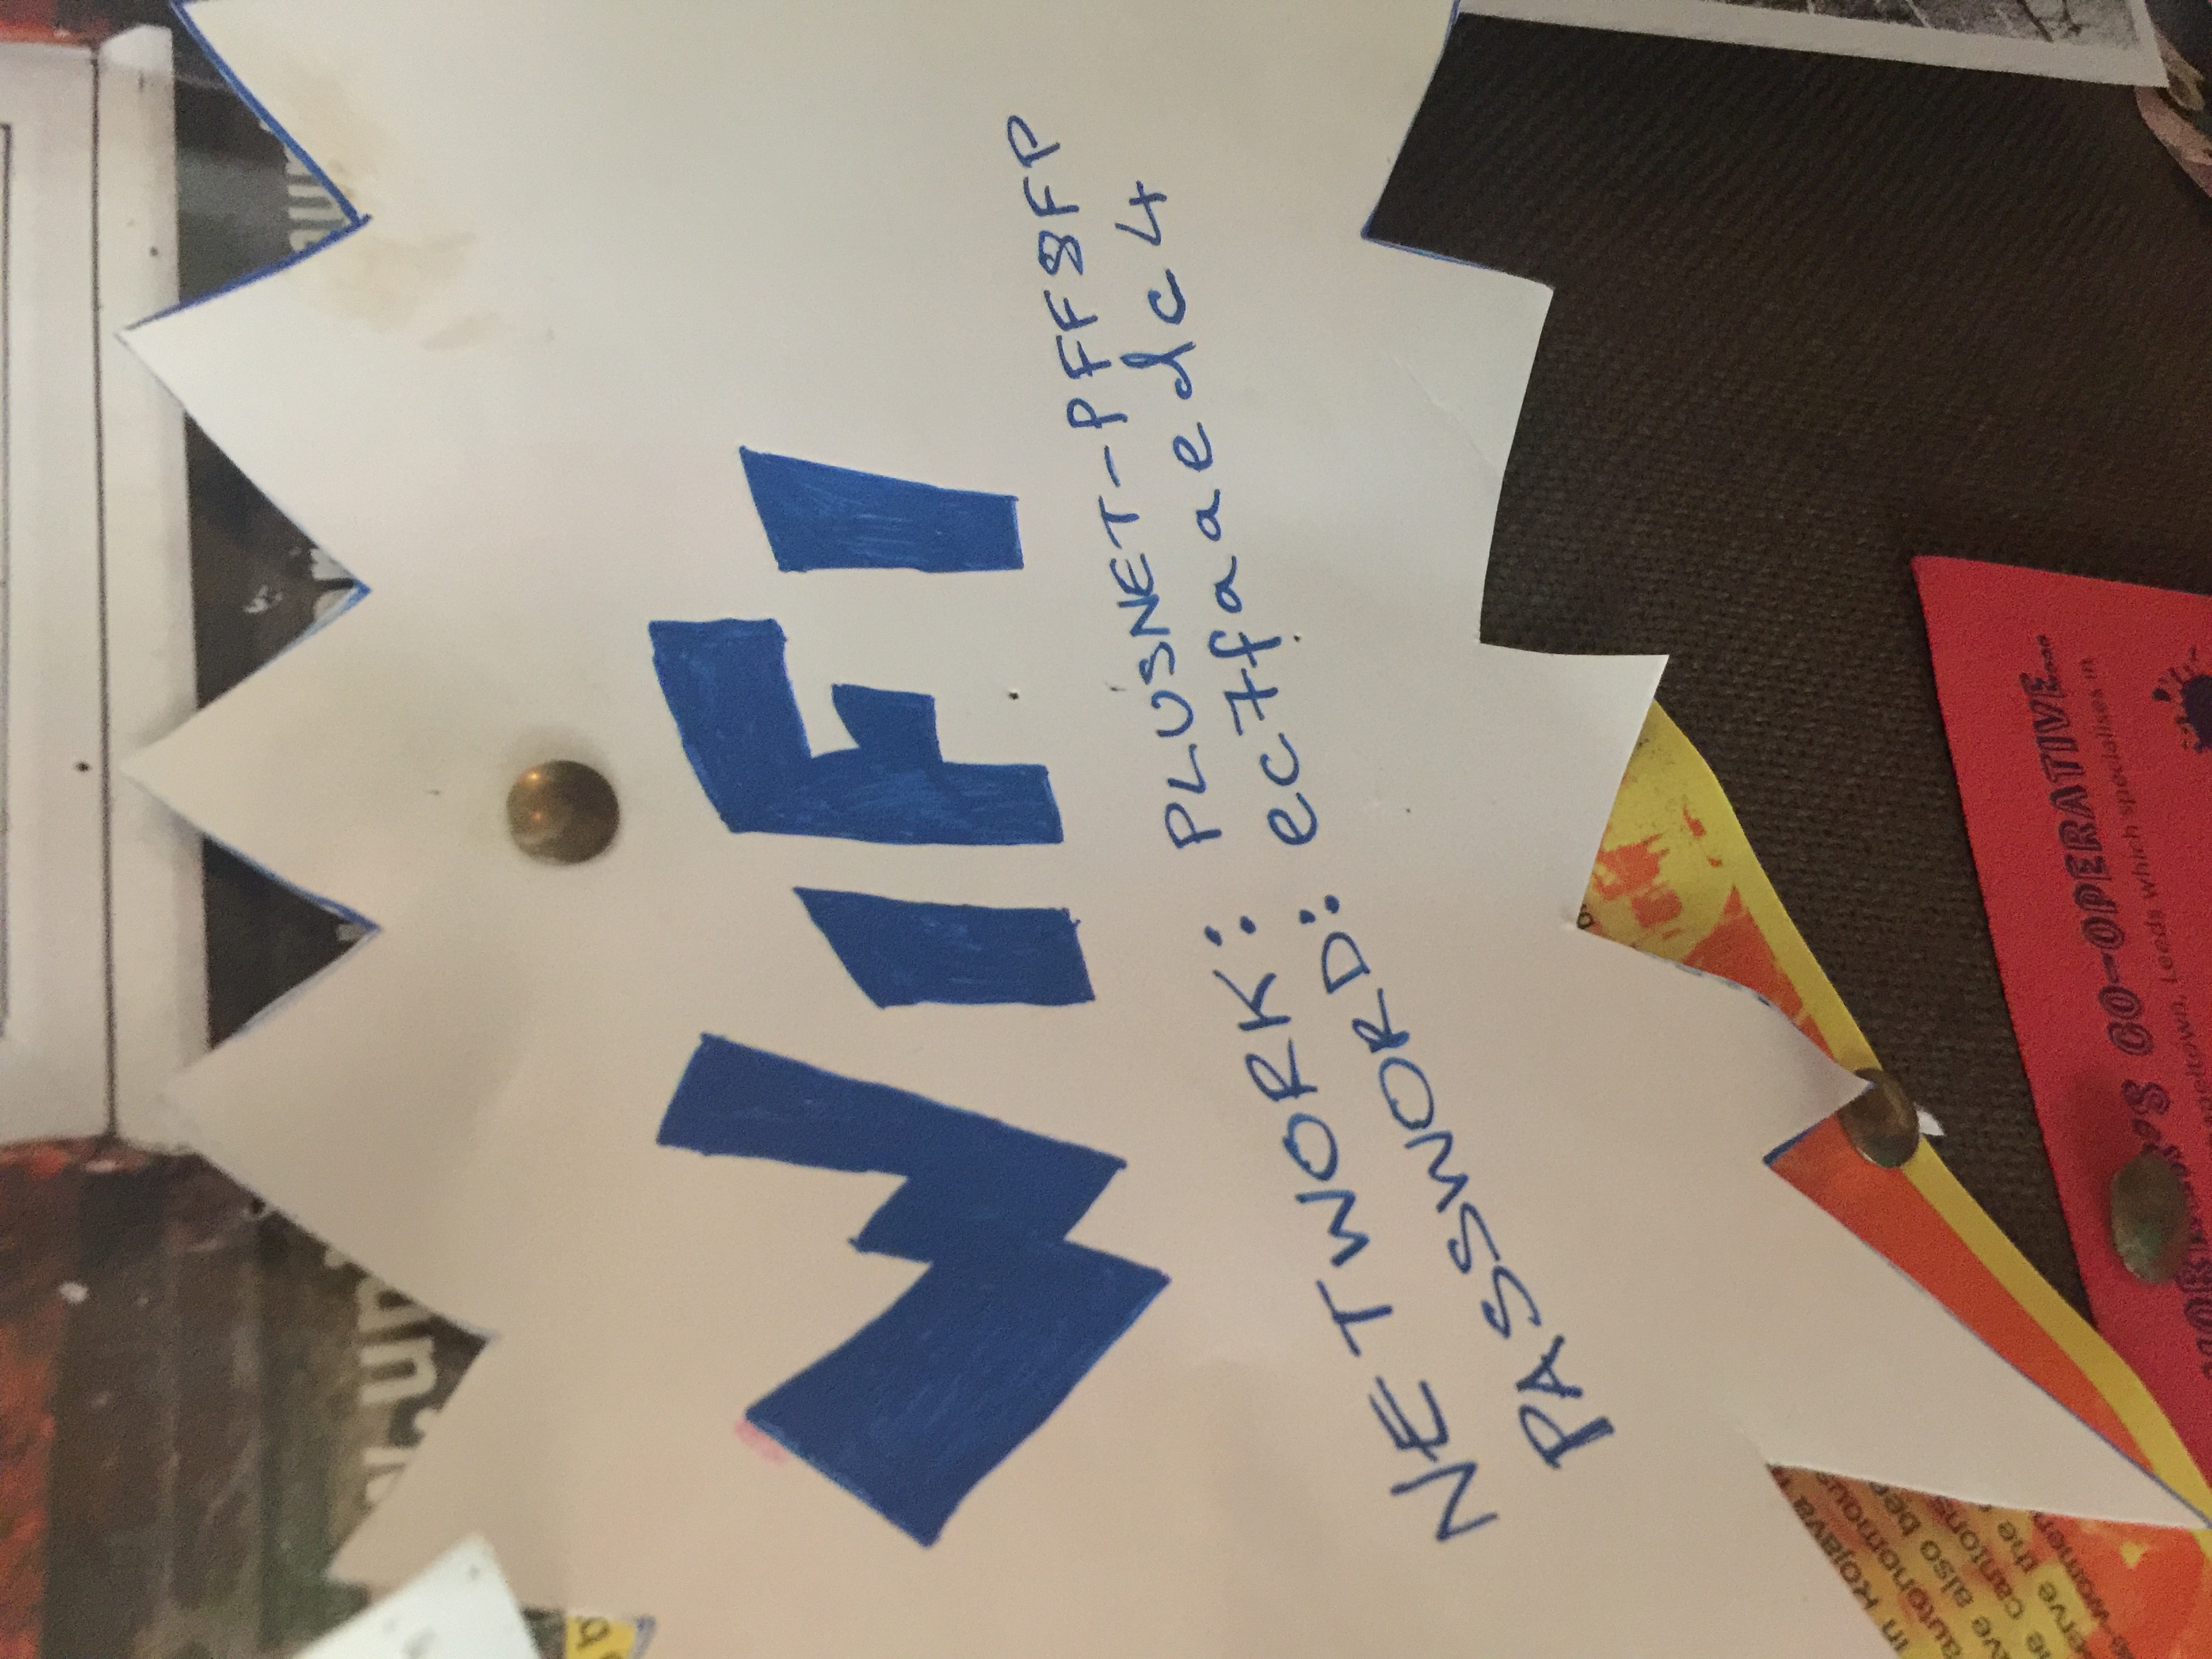 WiFi
NETWORK: PLUSNET-PFF8FP
PASSWORD: ec7faaedc4
in Rojava
autonomous
also
cantons
the
CO-OPERATIVE...
Leeds which specialises in